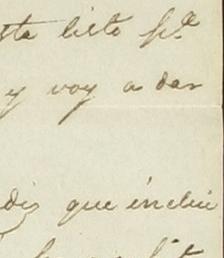 sta listo pte
y voy a dar
diz que inclui